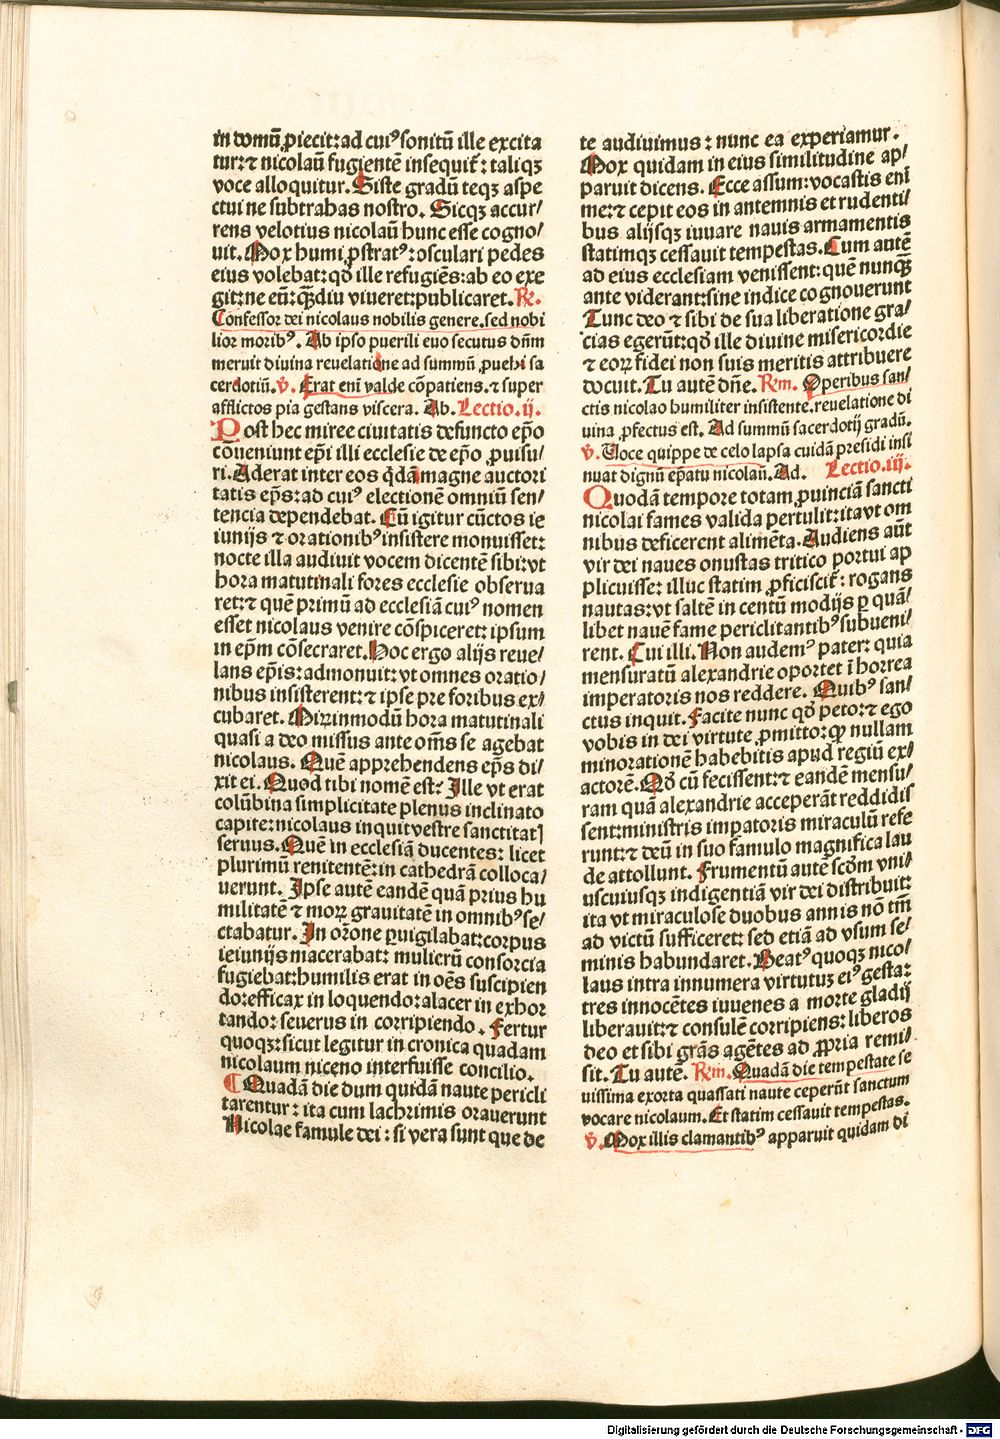 in domū ꝓiecit: ad cuiꝰ sonitū ille excita
tur: ⁊ nicolaū fugientē insequit᷑: taliqꝫ
voce alloquitur. Siste gradū teqꝫ aspe
ctui ne subtrahas nostro. Sicqꝫ accur/
rens velotius nicolaū hunc esse cogno/
uit. Mox humi ꝓstratꝰ: osculari pedes
eius volebat: qd̓ ille refugiēs: ab eo exe
git: ne eū: qꝫ̄diu viueret: publicaret. R̃.
Confessor dei nicolaus nobilis genere. sed nobi
lior moribꝰ. Ab ipso puerili euo secutus dn̄m
meruit diuina reuelatione ad summū ꝓuehi sa
cerdotiū. v̓. Erat eni valde cōpatiens. ⁊ super
afflictos pia gestans viscera. Ab. Lectio. ij.
Post hec miree ciuitatis defuncto ep̄o
cōueniunt ep̄i illi ecclesie de ep̄o ꝓuisu/
ri. Aderat inter eos q̄dā magne auctori
tatis ep̄s: ad cuiꝰ electionē omniū sen/
tencia dependebat. Cū igitur cūctos ie
iunijs ⁊ orationibꝰ insistere monuisset:
nocte illa audiuit vocem dicentē sibi: vt
hora matutinali fores ecclesie obserua
ret: ⁊ quē primū ad ecclesiā cuiꝰ nomen
esset nicolaus venire cōspiceret: ipsum
in ep̄m cōsecraret. Hoc ergo alijs reue/
lans ep̄is: admonuit: vt omnes oratio/
nibus insisterent: ⁊ ipse pre foribus ex/
cubaret. Mirinmodū hora matutinali
quasi a deo missus ante om̄s se agebat
nicolaus. Quē apprehendens ep̄s di/
xit ei. Quod tibi nomē est: Ille vt erat
colūbina simplicitate plenus inclinato
capite: nicolaus inquit vestre sanctitatꝭ
seruus. Quē in ecclesiā ducentes: licet
plurimū renitentē: in cathedrā colloca/
uerunt. Ipse autē eandē quā prius hu
militatē ⁊ moꝝ grauitatē in omnibꝰ se/
ctabatur. In or̄one ꝑuigilabat: corpus
ieiunijs macerabat: mulierū consorcia
fugiebat: humilis erat in oēs suscipien
do: efficax in loquendo: alacer in exhor
tando: seuerus in corripiendo. Fertur
quoqꝫ: sicut legitur in cronica quadam
nicolaum niceno interfuisse concilio.
¶ Quadā die dum quidā naute pericli
tarentur: ita cum lachrimis orauerunt
Nicolae famule dei: si vera sunt que de
te audiuimus: nunc ea experiamur.
Mox quidam in eius similitudine ap/
paruit dicens. Ecce assum: vocastis enī
me: ⁊ cepit eos in antemnis et rudenti/
bus alijsqꝫ iuuare nauis armamentis
statimqꝫ cessauit tempestas. Cum autē
ad eius ecclesiam venissent: quē nunqꝫ̄
ante viderant: sine indice cognouerunt
Tunc deo ⁊ sibi de sua liberatione gra/
cias egerūt: qd̓ ille diuine misericordie
⁊ eoꝝ fidei non suis meritis attribuere
docuit. Tu autē dn̄e. R̃m. Operibus san/
ctis nicolao humiliter insistente. reuelatione di
uina ꝓfectus est. Ad summū sacerdotij gradū.
v̓. Uoce quippe de celo lapsa cuidā presidi insi
nuat dignū ep̄atu nicolaū. Ad. Lectio. iij.
Quodā tempore totam ꝓuinciā sancti
nicolai fames valida pertulit: ita vt om
nibus deficerent alimēta. Audiens aūt
vir dei naues onustas tritico portui ap
plicuisse: illuc statim ꝓficiscit᷑: rogans
nautas: vt saltē in centū modijs ꝑ quā/
libet nauē fame periclitantibꝰ subueni/
rent. Cui illi. Non audemꝰ pater: quia
mensuratū alexandrie oportet ī horrea
imperatoris nos reddere. Quibꝰ san/
ctus inquit. Facite nunc qd̓ peto: ⁊ ego
vobis in dei virtute ꝓmitto: ꝙ nullam
minorationē habebitis apud regiū ex/
actorē. Qd̓ cū fecissent: ⁊ eandē mensu/
ram quā alexandrie acceperāt reddidis
sent: ministris impatoris miraculū refe
runt: ⁊ deū in suo famulo magnifica lau
de attollunt. Frumentū autē scd̄m vni/
uscuiusqꝫ indigentiā vir dei distribuit:
ita vt miraculose duobus annis nō tm̄
ad victū sufficeret: sed etiā ad vsum se/
minis habundaret. Beatꝰ quoqꝫ nico/
laus intra innumera virtutuꝫ eiꝰ gesta:
tres innocētes iuuenes a morte gladij
liberauit: ⁊ consulē corripiens: liberos
deo et sibi grās agētes ad ꝓpria remi/
sit. Tu autē. R̃m. Quadā die tempestate se
uissima exorta quassati naute ceperūt sanctum
vocare nicolaum. Et statim cessauit tempestas.
v̓. Mox illis clamantibꝰ apparuit quidam di
Digitalisierung gefördert durch die Deutsche Forschungsgemeinschaft - DFG